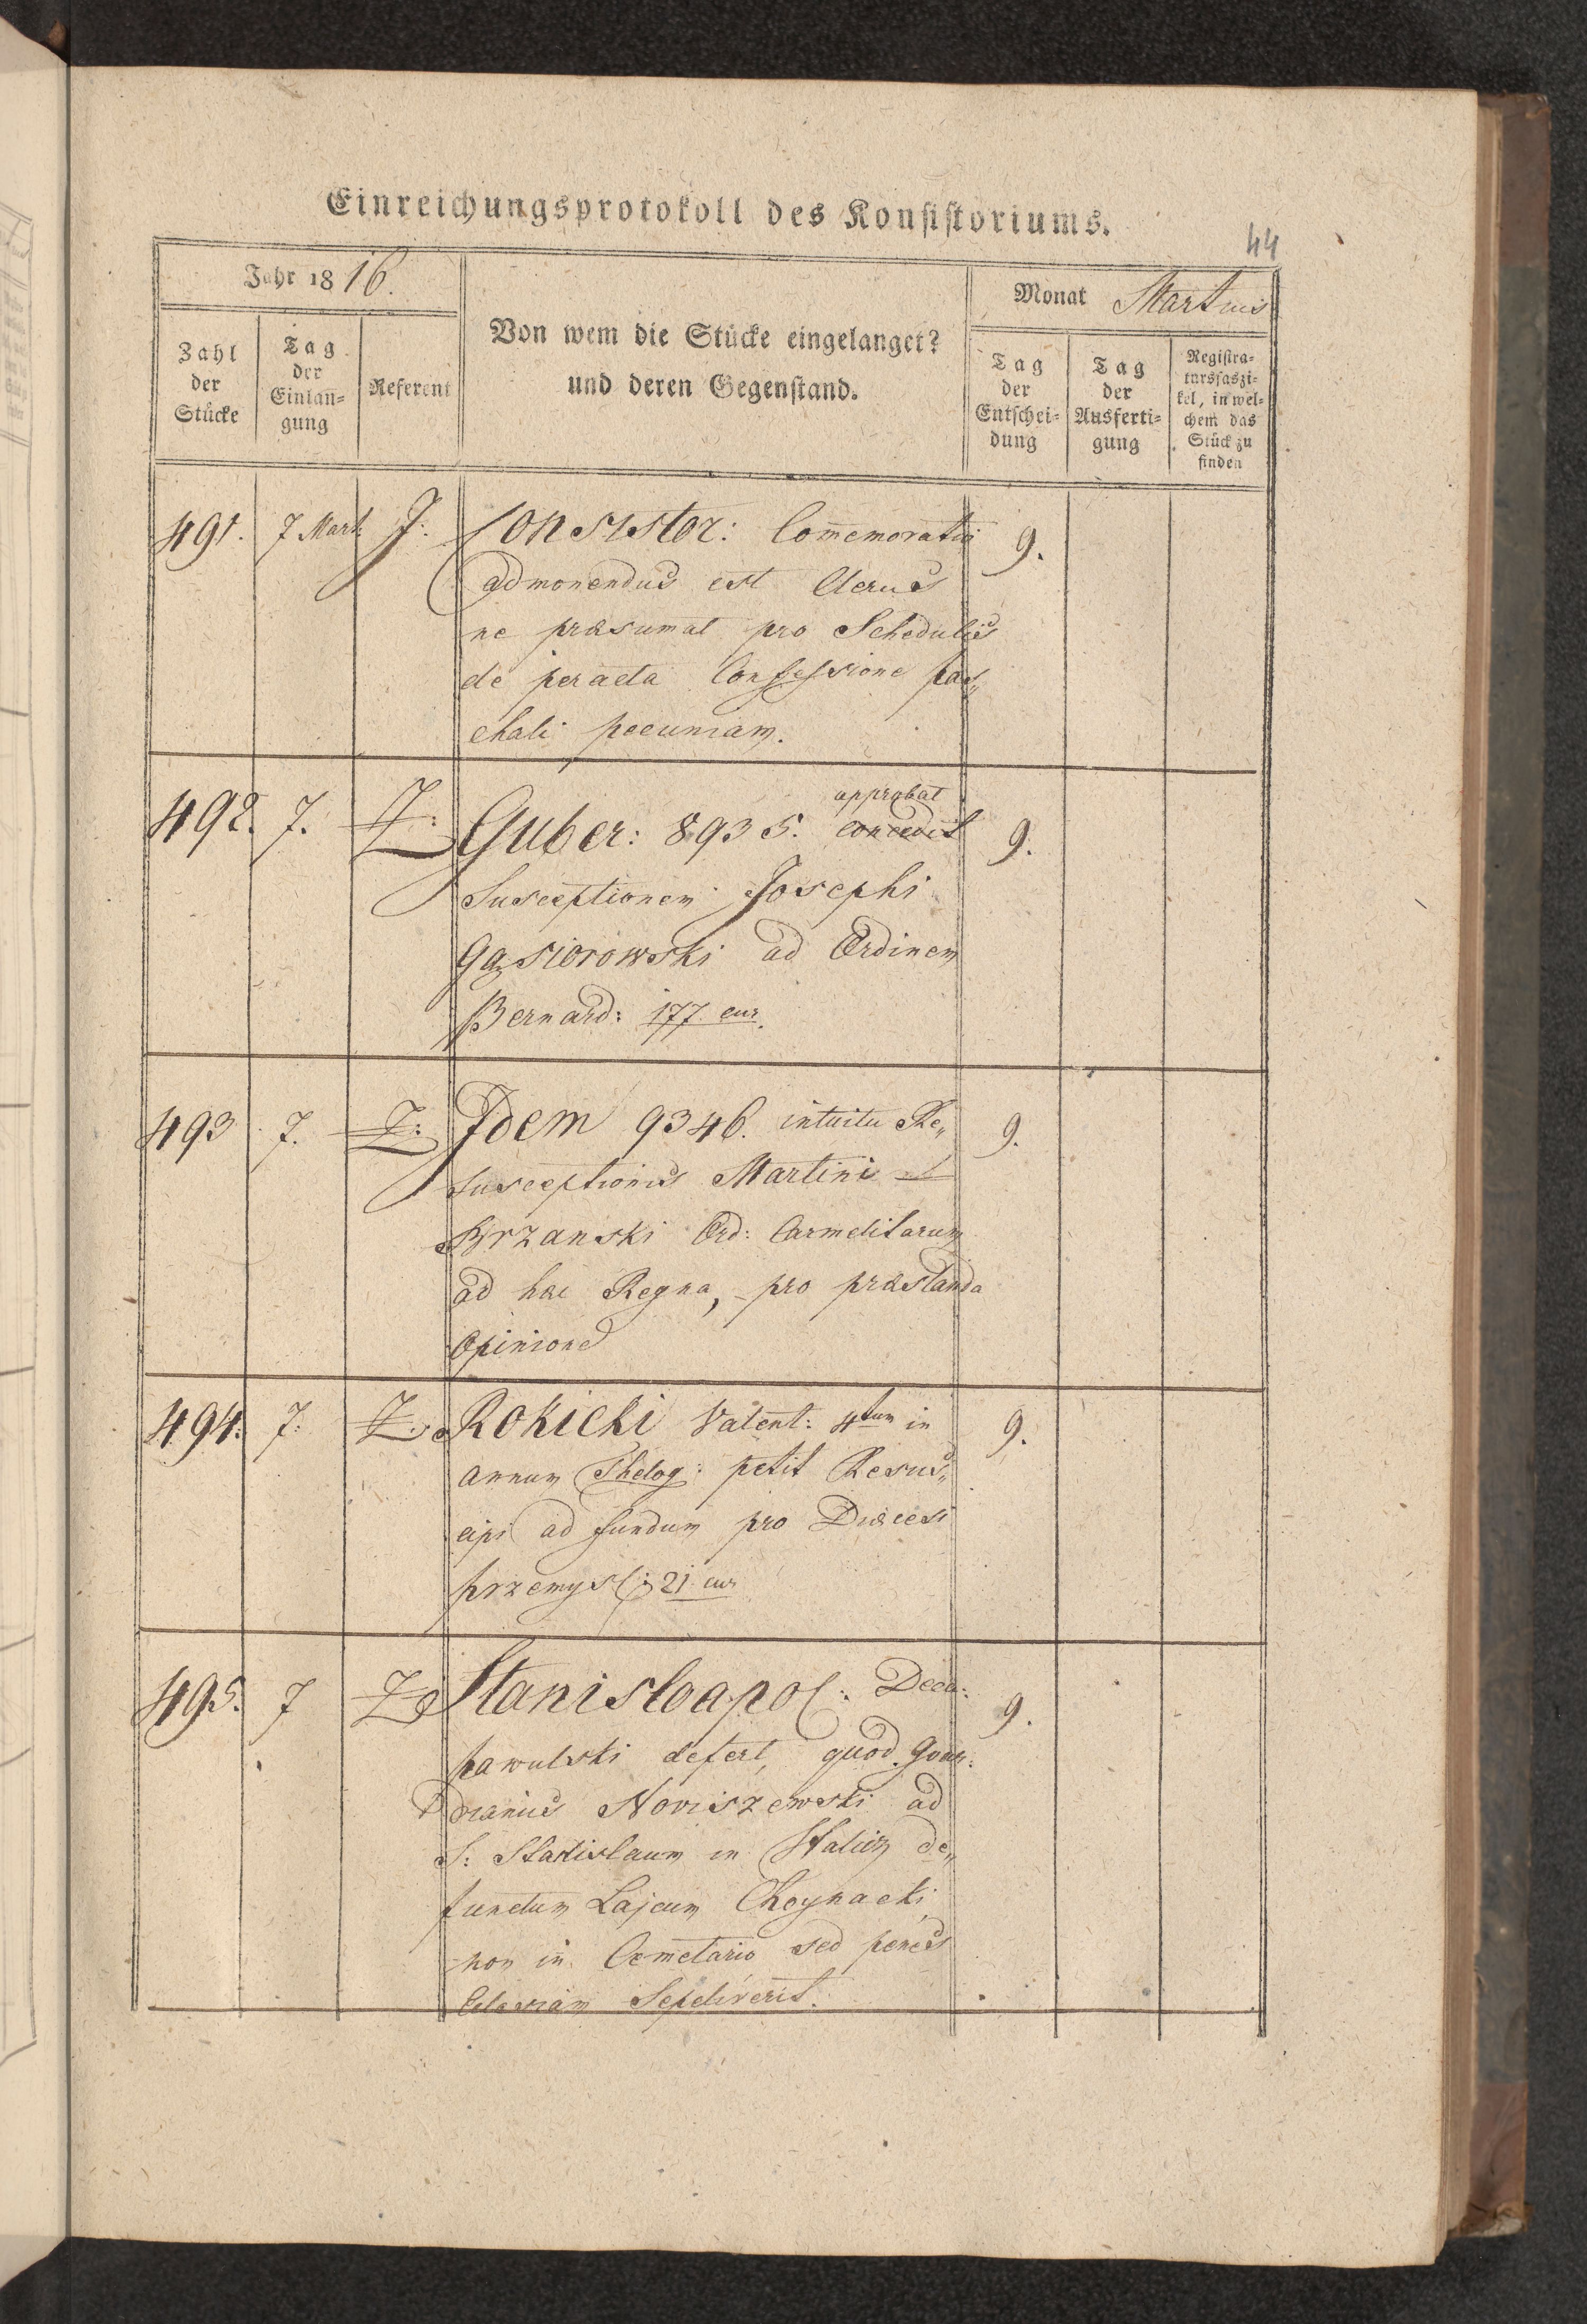 Einreichungsprotokoll des Konsistoriums.
44
Jahr 1816.
Monat Martius
Zahl der Stücke
Tag der Einlan=gung
Referent
Von wem die Stücke eingelanget?
und deren Gegenstand.
Tag der Entschei=dung
Tag der Ausferti=gung
Registra=tursfaszi=kel, in wel=chem das Stück zu finden
491. 7 Mart. J. Consistor: Com̄emoratio 9.
admonendus est Clerus
ne præsumat pro Schedulis
de peracta Confessione pas„
chali pecuniam.
approbat
492. 7. Z: Guber: 8935. concedit 9.
Susceptionem Josephi
Gąsiorowski ad Ordinem
Bernard: 177 cur.
493 7. Z: Idem 9346. intuitu Re„ 9.
susceptionis Martini
Ord: Carmelitarum
ad hæc Regna, pro præstanda
Opinione
494. 7. Z. Rokicki Valent: 4tum in 9.
annum Thelog: petit Resus„
cipi ad fundum pro Diæcesi
przemysl: 21 cur
495. 7 Z Stanislaopol: Deca: 9.
pawulski defert, quod Guar:
dianus Noviszewski ad
S: Stanislaum in Halicz de„
functum Lajcum Choynacki
non in Cem̄etario sed penes
Ecclesiam Sepeliverit.